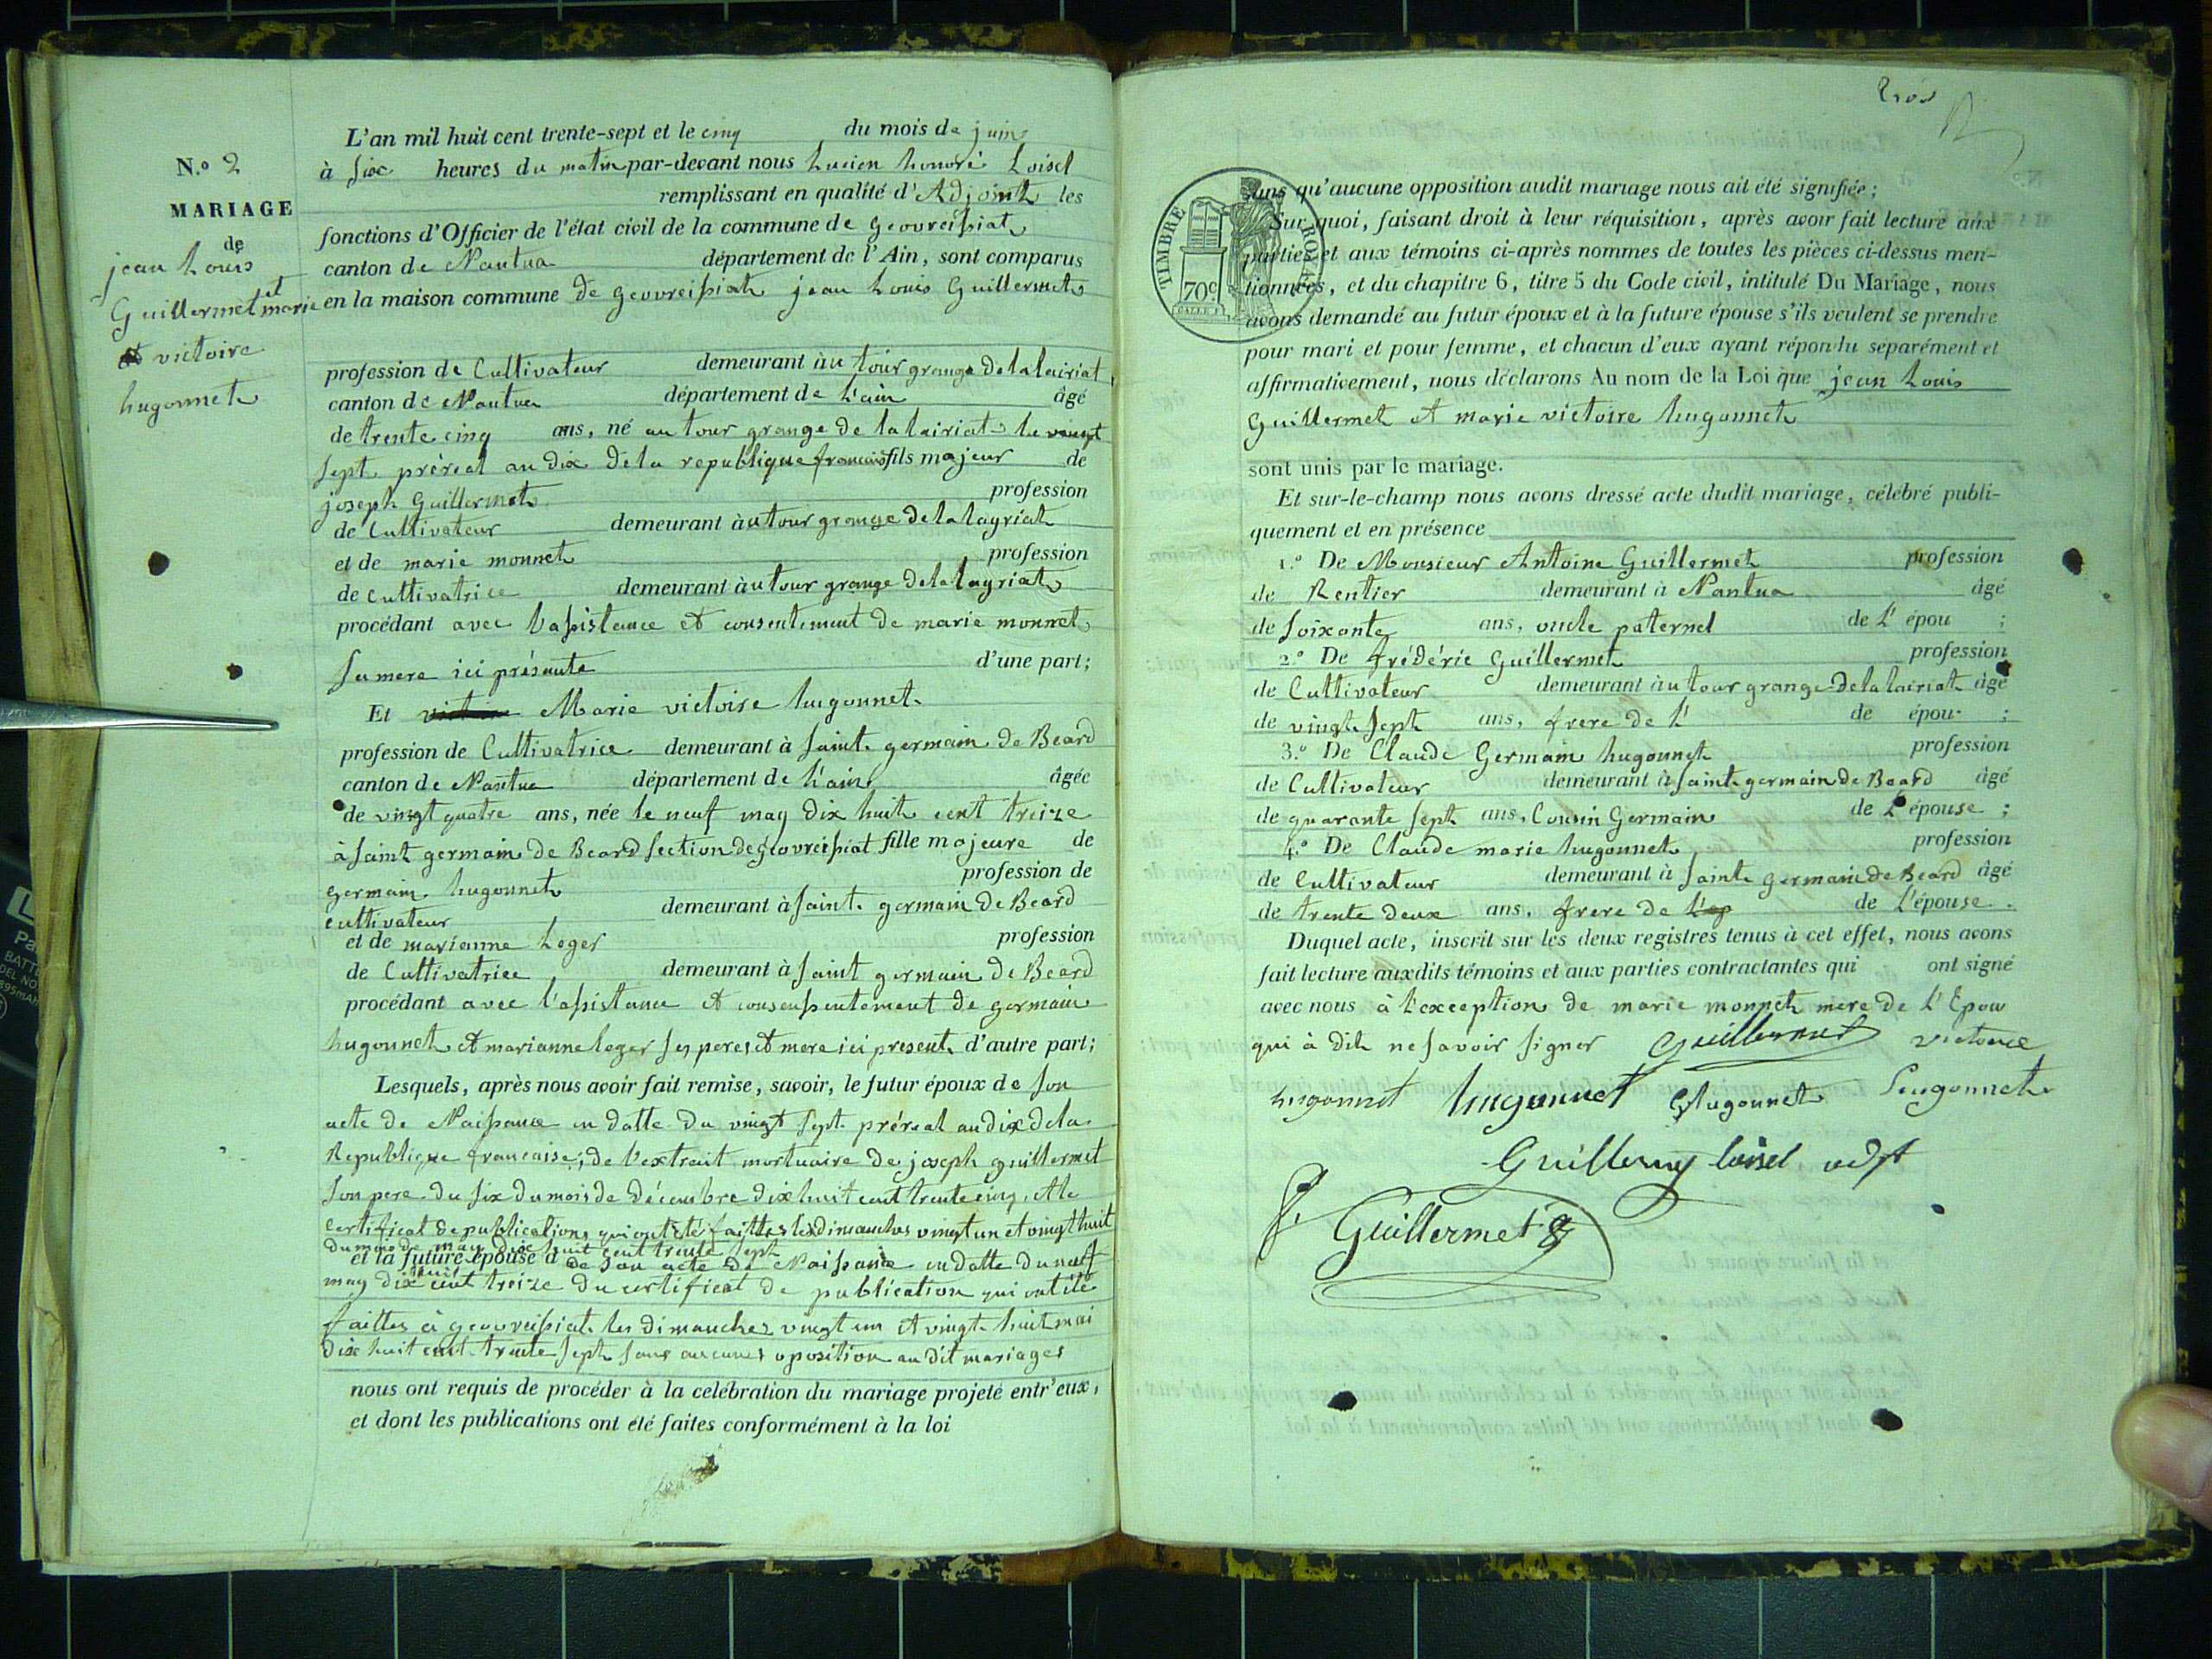 N.º 2
MARIAGE
de
jean Louis
Guillermet et marie
et victoire
hugonnet
L'an mil huit cent trente-sept et le cinq du mois de juin
à six heures du matin par-devant nous Lucien honoré Loisel
remplissant en qualité d'Adjoint les
fonctions d'Officier de l'état civil de la commune de geovreissiat
canton de Nantua département de l'Ain, sont comparus
en la maison commune de geovreissiat jean Louis Guillermet
profession de Cultivateur demeurant à u tour grange de la lairiat
canton de Nantua département de L'ain âgé
de trente cinq ans, né au tour grange de la lairiat le vingt
sept préreal an dix de la republique francais fils majeur de
joseph Guillermet profession
de Cultivateur demeurant à u tour grange de la layriat
et de marie monnet profession
de cultivatrice demeurant à u tour grange de la layriat
procédant avec l'assistance et consentement de marie monnet
sa mere ici présante d'une part;
Et victoire Marie victoire hugonnet
profession de Cultivatrice demeurant à saint germain de Beard
canton de Nantua département de L'ain âgée
de vingt quatre ans, née le neuf may dix huit cent treize
à saint germain de Beard section de géovreissiat fille majeure de
germain hugonnet profession de
cultivateur demeurant à saint germain de Beard
et de marianne Leger profession
de Cultivatrice demeurant à saint germain de Beard
procédant avec l'assistance et consensentement de germain
hugonnet et marianne leger ses peres et mere ici present d'autre part;
Lesquels, après nous avoir fait remise, savoir, le futur époux de son
acte de Naissance en datte du vingt sept préreal an dix de la
Republique francaise; de l'extrait mortuaire de joseph guillermet
son pere du six du mois de décembre dix huit cent trente cinq, et le
certificat de publications qui ont été faittes les dimanches vingt un et vingt huit
du mois de may dix huit cent trente sept
et la future épouse d de son acte de Naissance en datte du neuf
may dix huit cent treize du certificat de publication qui ont été
faittes à geovreissiat les dimanches vingt un et vingt huit mai
dix huit cent trente sept sans aucunes oposition au dit mariages
nous ont requis de procéder à la celébration du mariage projeté entr'eux,
et dont les publications ont été faites conformément à la loi
TIMBRE ROYAL
70c
sans qu'aucune opposition audit mariage nous ait été signifiée;
Sur quoi, faisant droit à leur réquisition, après avoir fait lecture aux
parties et aux témoins ci-après nommes de toutes les pièces ci-dessus men-
tionnées, et du chapitre 6, titre 5 du Code civil, intitulé Du Mariage, nous
avons demandé au futur époux et à la future épouse s'ils veulent se prendre
pour mari et pour femme, et chacun d'eux ayant répondu séparément et
affirmativement, nous déclarons Au nom de la Loi que jean Louis
Guillermet et marie victoire hugonnet
sont unis par le mariage.
Et sur-le-champ nous avons dressé acte dudit mariage, célébré publi-
quement et en présence
1.º De Monsieur Antoine Guillermet profession
de Rentier demeurant à Nantua âgé
de soixante ans, oncle paternel de L' épou ;
2.º De frédéric Guillermet profession
de Cultivateur demeurant à u tour grange de la lairiat âgé
de vingt sept ans, frere de L' de épou ;
3.º De Claude Germain hugonnet profession
de Cultivateur demeurant à saint germain de Beard âgé
de quarante sept ans, Cousin Germain de L'épouse ;
4.º De Claude marie hugonnet profession
de Cultivateur demeurant à saint germain de Beard âgé
de trente deux ans, frere de L'ep de L'épouse.
Duquel acte, inscrit sur les deux registres tenus à cet effet, nous avons
fait lecture auxdits témoins et aux parties contractantes qui ont signé
avec nous à l'exception de marie monnet mere de L'Epou
qui à dit ne savoir signer Guillermet victoire
hugonnet hugonnet G hugonnet hugonnet
Guillermet loisel adjt
Guillermet